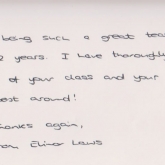 being such a great tea
2 years. I have thoroughly
of your class and your
est around!
anks again,
om Elinor Laws